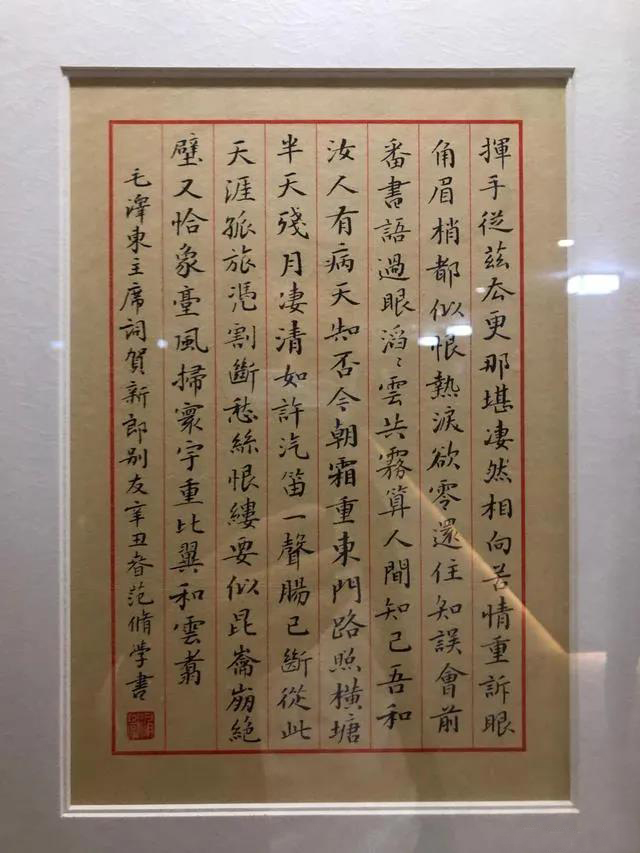 揮手從茲去更那堪凄然相向苦情重訴眼
角眉梢都似恨熱淚欲零還住知誤會前
番書語過眼滔〻雲共霧算人間知己吾和
汝人有病天知否今朝霜重東門路照橫塘
半天殘月凄清如許汽笛一聲腸已斷從此
天涯孤旅憑割斷愁絲恨縷要似昆崙崩絕
壁又恰象臺風掃寰宇重比翼和雲翥
毛澤東主席詞賀新郎别友辛丑春范脩學書